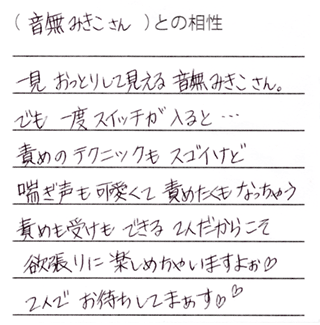 (音無みきこさん)との相性
一見 おっとりして見える 音無みきこさん。
でも 一度 スイッチが 入ると…
責めの テクニックも スゴイけど
喘ぎ声も 可愛くて 責めたくも なっちゃう
責めも 受けも できる 2人だからこそ
欲張りに 楽しめちゃいますよぉ♡
2人で お待ちしてまぁす♡♡